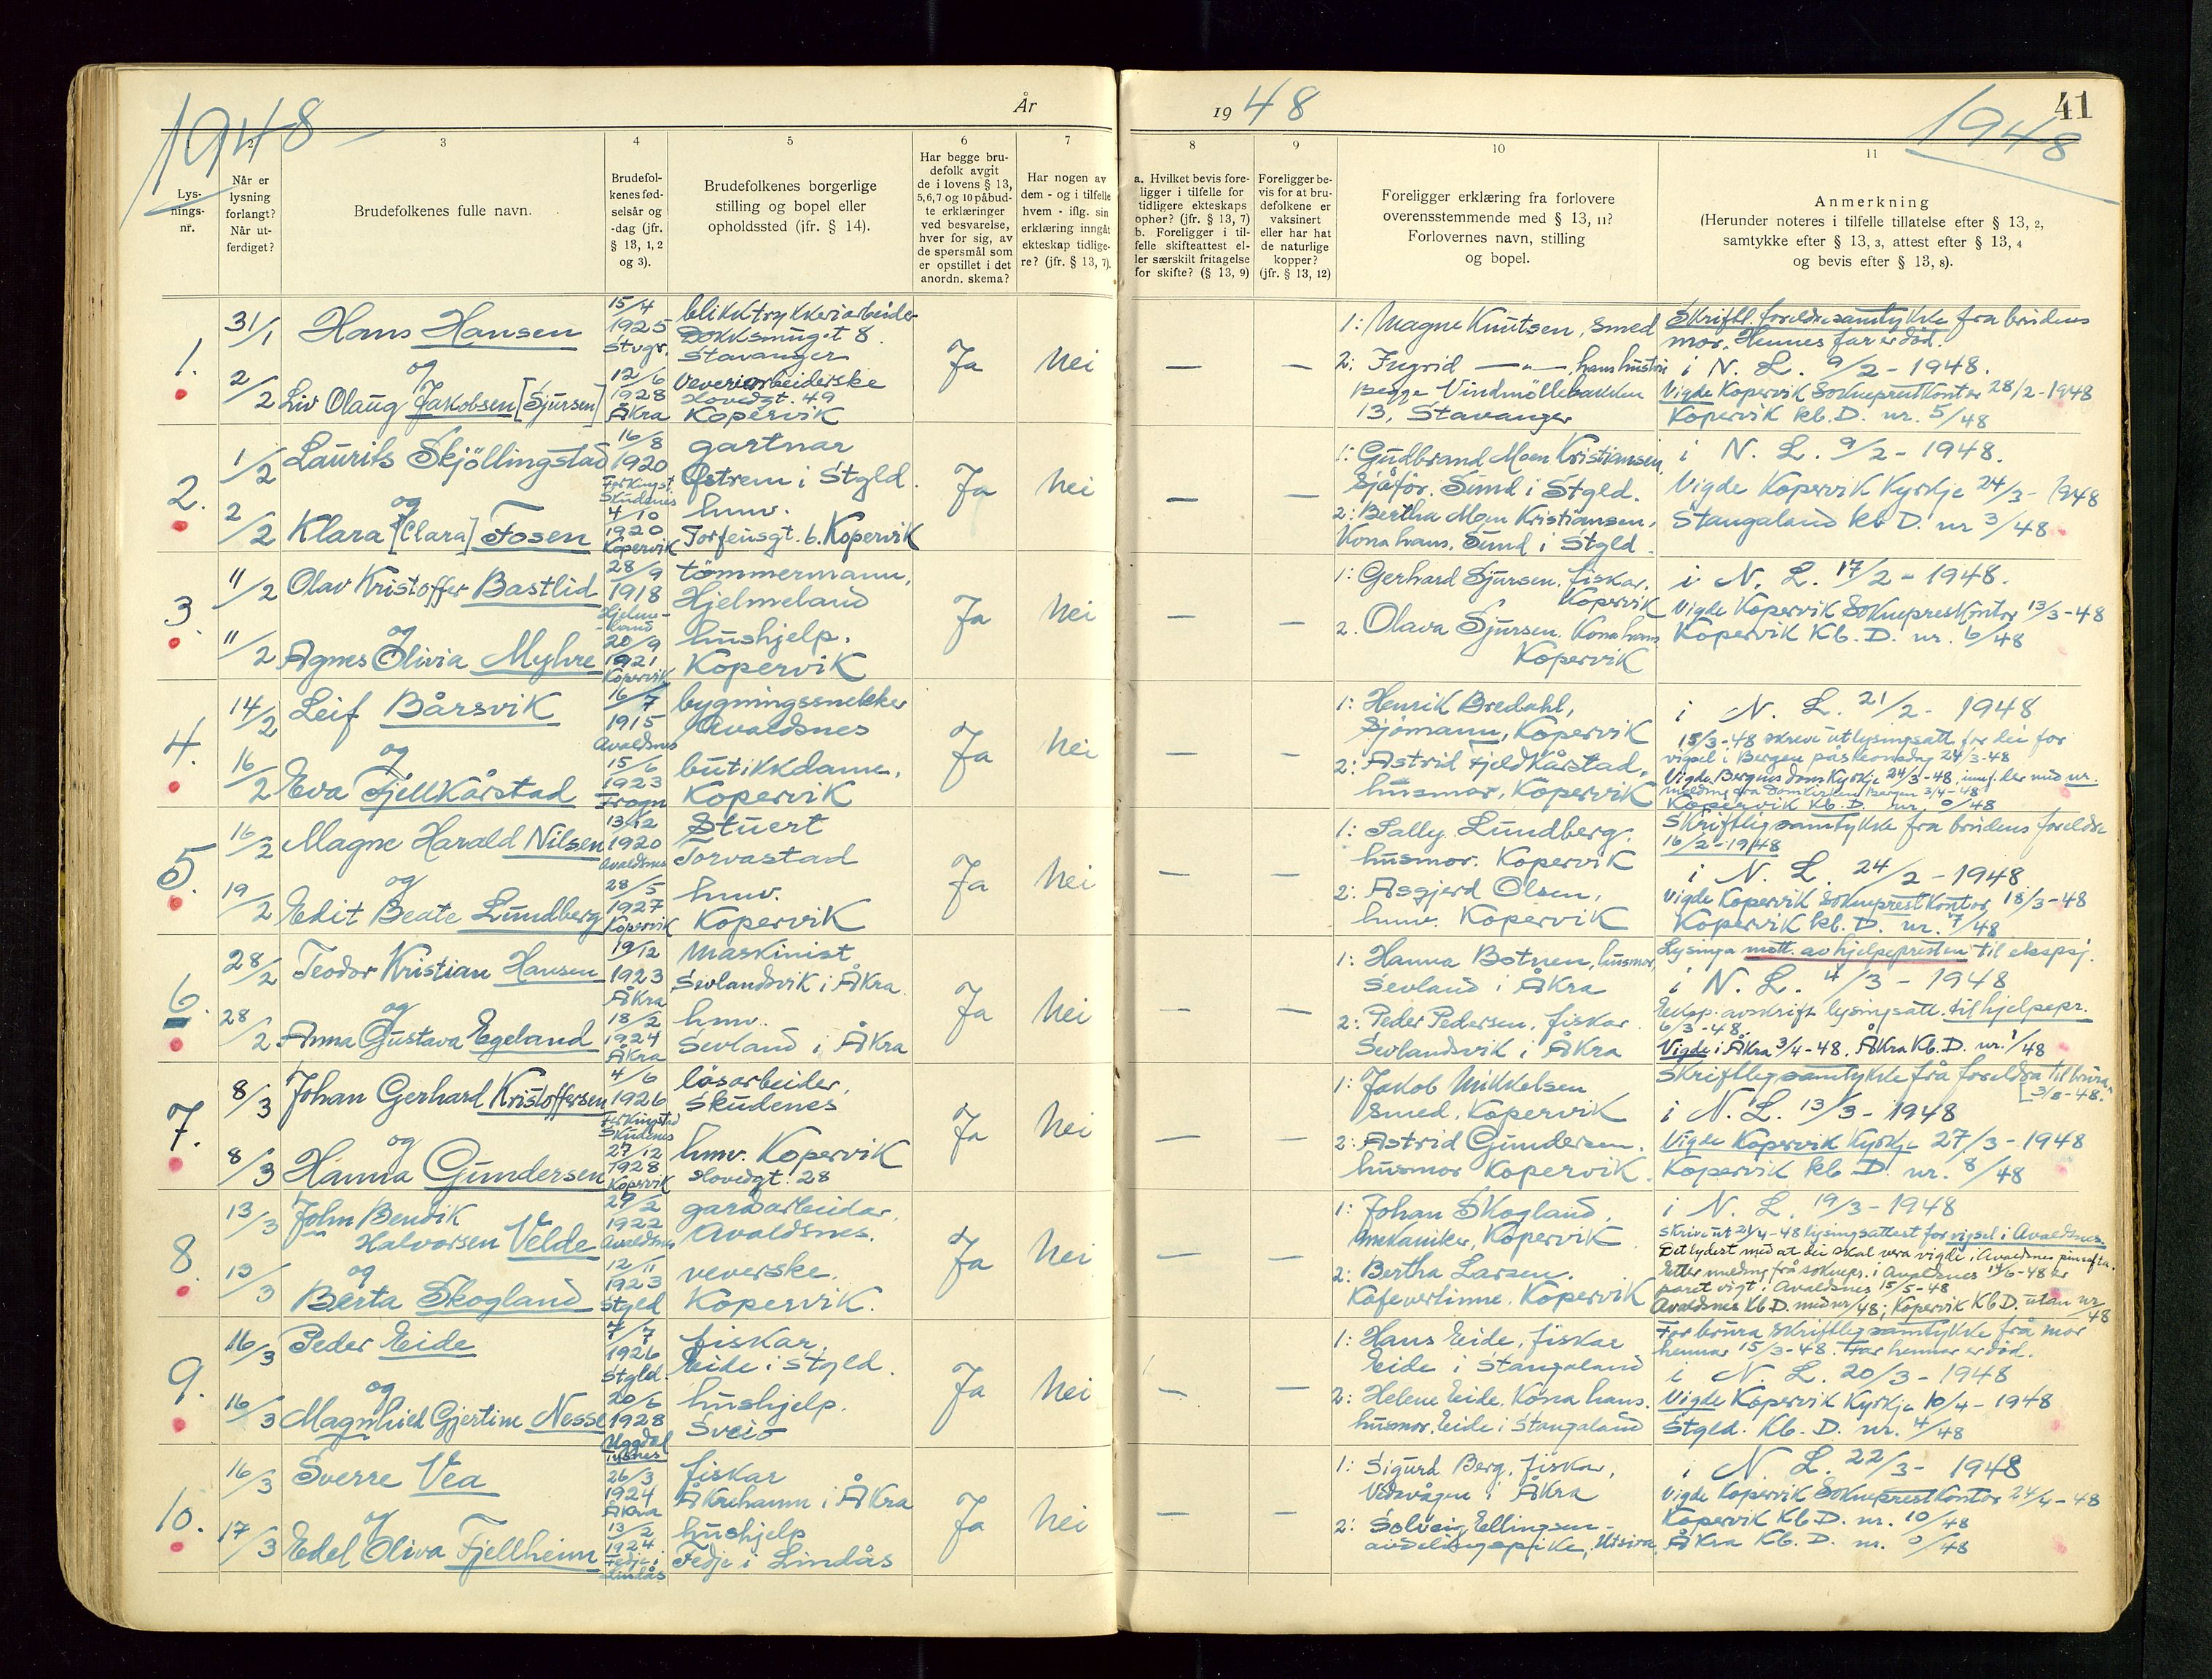 1948
År
1948
1948
41
Lys-
nings-
nr.
2
Når er
lysning
forlangt?
Når ut-
ferdiget?
3
Brudefolkenes fulle navn.
4
Brudefol-
kenes fød-
selsår og
-dag (jfr.
§ 13, 1, 2
og 3).
5
Brudefolkenes borgerlige
stilling og bopel eller
opholdssted (jfr. § 14).
6
Har begge bru-
defolk avgit
de i lovens § 13,
5,6,7 og 10 påbud-
te erklæringer
ved besvarelse,
hver for sig, av
de spørsmål som
er opstillet i det
anordn. skema?
7
Har nogen av
dem - og i tilfelle
hvem - iflg. sin
erklæring inngåt
ekteskap tidlige-
re? (jfr. § 13, 7).
8
a. Hvilket bevis fore-
ligger i tilfelle for
tidligere ekteskaps
ophør? (jfr. § 13, 7)
b. Foreligger i til-
felle skifteattest el-
ler særskilt fritagelse
for skifte? (§ 13, 9)
9
Foreligger be-
vis for at bru-
defolkene er
vaksinert
eller har hat
de naturlige
kopper?
(jfr. § 13, 12)
10
Foreligger erklæring fra forlovere
overensstemmende med § 13, 11?
Forlovernes navn, stilling
og bopel.
11
Anmerkning
(Herunder noteres i tilfelle tillatelse efter § 13, 2,
samtykke efter § 13, 3, attest efter § 13, 4
og bevis efter § 13, 8).
1.
31/1
2/2
Hans Hansen
og
Liv Olaug Jakobsen [Sjursen]
15/4
1925
Stvgr.
12/6
1928
Åkra
blikktrykkeriarbeider
Dokksmuget 8.
Stavanger
Veveriarbeiderske
Hovedgt. 49
Kopervik
Ja
Nei
—
—
1: Magne Knutsen, smed
2: Ingrid —"—, hans hustru
Begge Vindmöllebakken
13, Stavanger
Skriftl. foreldresamtykke fra brudens
mor. Hennes far er död.
i N. L. 9/2 - 1948.
Vigde Kopervik Sokneprestkontor 28/2 - 1948
Kopervik kb. D. nr. 5/48
2.
1/2
2/2
Laurits Skjöllingstad
og
Klara [Clara] Fosen
16/8
1920
Ferkingst.
Skudenes
4/10
1920
Kopervik
gartnar
Östrem i Stgld.
hmv.
Torfeusgt. 6. Kopervik
Ja
Nei
—
—
1: Gudbrand Moen Kristiansen,
Sjåför. Sund i Stgld.
2: Bertha Moen Kristiansen,
Kona hans. Sund i Stgld.
i N. L. 9/2 - 1948.
Vigde Kopervik Kyrkje 24/3 - 1948
Stangaland kb D. nr 3/48
3.
11/2
11/2
Olav Kristoffer Bastlid
og
Agnes Olivia Myhre
28/9
1918
Hjelme-
land
20/9
1921
Kopervik
tömmermann,
Hjelmeland
hushjelp.
Kopervik
Ja
Nei
—
—
1: Gerhard Sjursen. fiskar.
Kopervik
2. Olava Sjursen. Kona hans
Kopervik
i N. L. 17/2 - 1948.
Vigde Kopervik Sokneprestkontor 13/3 - 48
Kopervik Kb. D. nr. 6/48
4.
14/2
16/2
Leif Bårsvik
og
Eva Fjellkårstad
16/7
1915
Avaldsnes
15/6
1923
Frogn
bygningssnekker
Avaldsnes
butikkdame,
Kopervik
Ja
Nei
—
—
1: Henrik Bredahl,
Sjömann, Kopervik
2: Astrid Fjeldkårstad,
husmor, Kopervik
i N. L. 21/2 - 1948
15/3-48 skreve utlysingsatt. for dei for
vigsel i Bergen påskeonsdag 24/3-48
Vigde Bergens domkyrkje 24/3-48, innf. her med nr.
melding fra Domkirken Bergen 3/4-48
Kopervik kb. D. nr. 0/48
5.
16/2
19/2
Magne Harald Nilsen
og
Edit Beate Lundberg
13/12
1920
Avaldsnes
28/5
1927
Kopervik
Stuert
Torvastad
hmv.
Kopervik
Ja
Nei
—
—
1: Sally Lundberg.
husmor. Kopervik
2: Asgjerd Olsen,
hmv. Kopervik
Skriftleg samtykke fra brudens foreldre
16/2 - 1948
i N. L. 24/2 - 1948
Vigde Kopervik Sokneprestkontor 18/3 - 48
Kopervik kb. D. nr. 7/48
6.
28/2
28/2
Teodor Kristian Hansen
og
Anna Gustava Egeland
19/12
1923
Åkra
18/2
1924
Åkra
Maskinist
Sevlandsvik i Åkra
hmv.
Sevland i Åkra
Ja
Nei
—
—
1: Hanna Botnen, husmor,
Sevland i Åkra
2: Peder Pedersen, fiskar.
Sevlandsvik i Åkra
Lysinga mott. av hjelpepresten til ekspsj.
i N. L. 4/3 - 1948
Eksp. avskrift lysingsatt. til hjelpepr.
6/3-48.
Vigde i Åkra 3/4-48. Åkra Kb. D. nr. 1/48
7.
8/3
8/3
Johan Gerhard Kristoffersen
og
Hanna Gundersen
4/6
1926
Ferkingstad
Skudenes
27/12
1928
Kopervik
lösarbeider,
Skudenes
hmv. Kopervik
Hovedgt. 28
Ja
Nei
—
—
1: Jakob Mikkelsen
smed, Kopervik
2: Astrid Gundersen.
husmor Kopervik.
Skriftleg samtykke frå foreldra til brura.
[3/3-48.
i N. L. 13/3 - 1948
Vigde Kopervik Kyrkje 27/3 - 1948
Kopervik kb. D. nr. 8/48
8.
13/3
13/3
John Bendik
Halvorsen Velde
og
Berta Skogland
29/2
1922
Avaldsnes
12/11
1923
Stgld
gardarbeidar,
Avaldsnes.
veverske.
Kopervik.
Ja
Nei
—
—
1: Johan Skogland,
Mekaniker, Kopervik
2: Bertha Larsen.
Kafevertinne. Kopervik
i N. L. 19/3 - 1948
Skrive ut 21/4-48 lysingsattest for vigsel i Avaldsnes.
Det lydest med at dei skal vera vigde i Avaldsnes pinsefta.
Etter melding frå soknepr. i Avaldsnes 14/6-48 er
paret vigt i Avaldsnes 15/5-48
Avaldsnes Kb D. med nr/48; Kopervik Kb D. utan nr/48
9.
16/3
16/3
Peder Eide
og
Magnhild Gjertine Nesse
7/7
1926
Stgld.
20/6
1928
Uggdal
Tysnes
fiskar,
Eide i Stgld.
hushjelp.
Sveio
Ja
Nei
—
—
1: Hans Eide, fiskar
Eide i Stangaland
2: Helene Eide. Kona hans.
husmor, Eide i Stangaland
For brura skriftleg samtykke frå mor
hennar 15/3-48. Far hennar er död.
i N. L. 20/3 - 1948
Vigde Kopervik Kyrkje 10/4 - 1948
Stgld. Kb. D. nr. 4/48
10.
16/3
17/3
Sverre Vea
og
Edel Oliva Fjellheim
26/3
1924
Åkra
13/2
1924
Fedje i
Lindås
fiskar
Åkrehamn i Åkra
hushjelp
Fedje i Lindås
Ja
Nei
—
—
1: Sigurd Berg, fiskar,
Vedavågen i Åkra
2: Solveig Ellingsen
avdelingspike, Utsira,
i N. L. 22/3 - 1948
Vigde Kopervik Sokneprestkontor 24/4 - 48
Kopervik Kb D. nr. 10/48
Åkra Kb. D. nr. 0/48